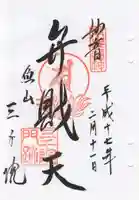 奉拝
平成十七年
二月十一日
弁財天
魚山
三千院